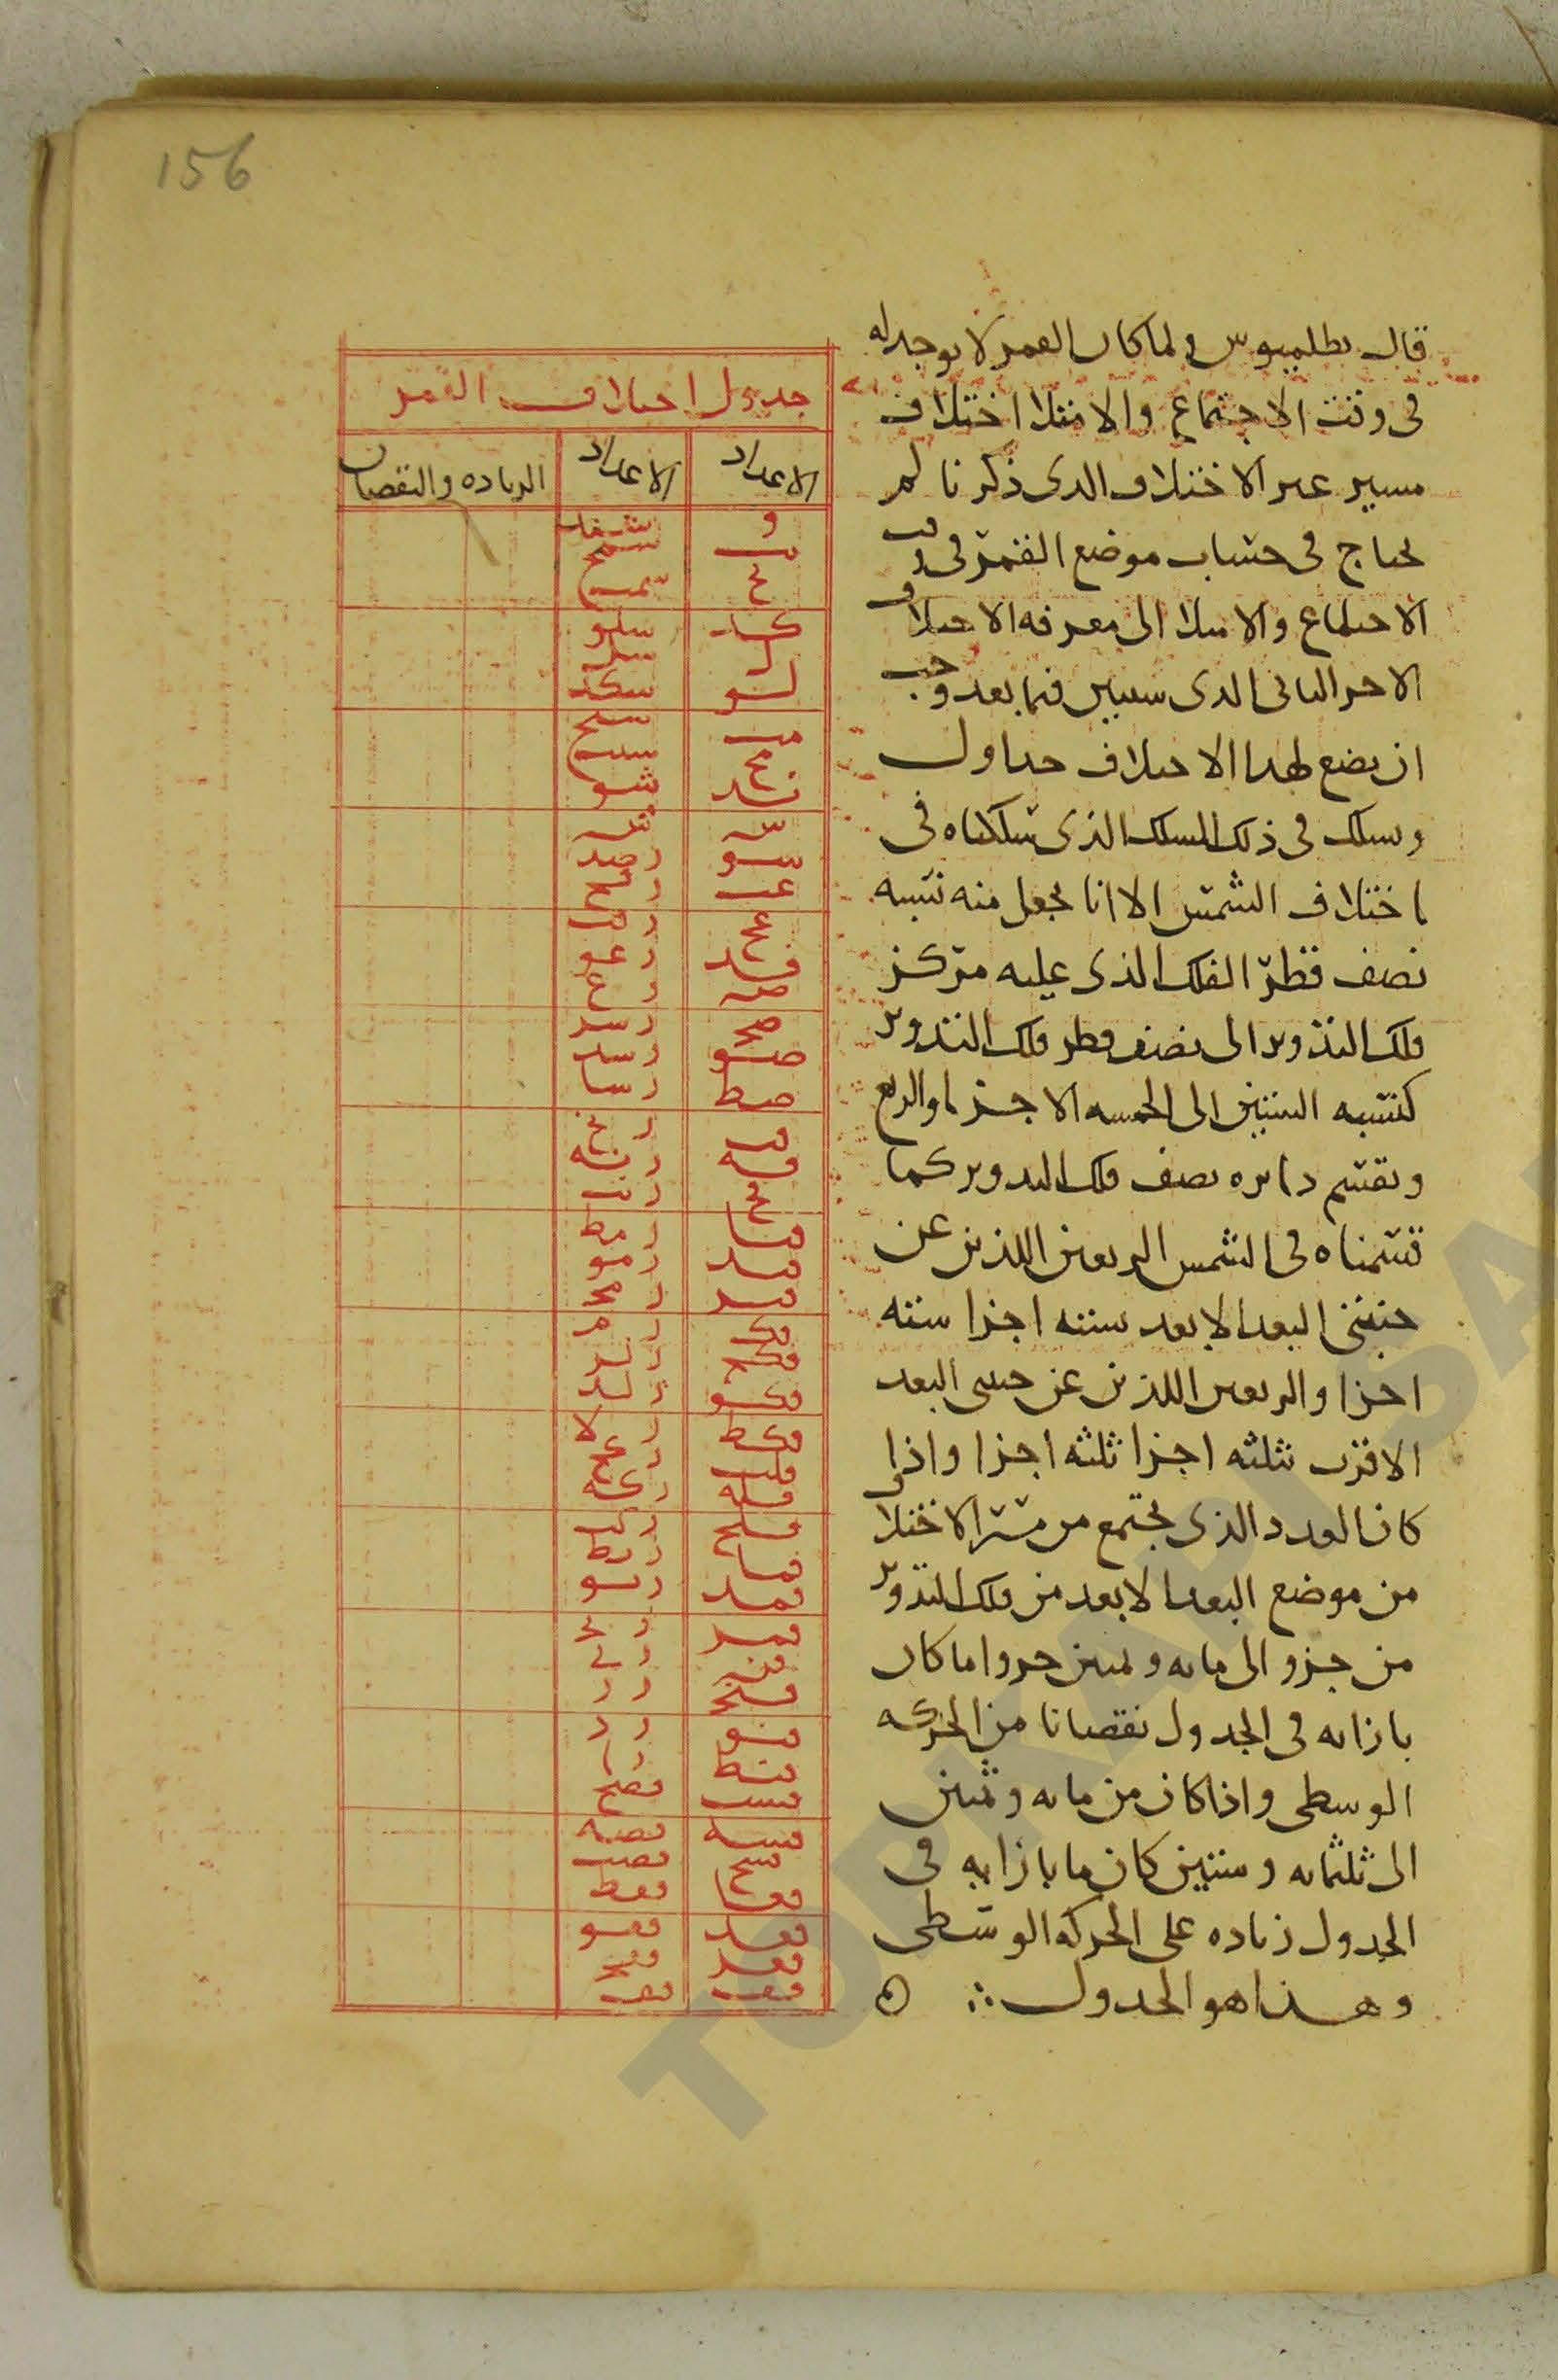 156
قال بطلميوس ولما كان القمر لا يوجد له
فى وقت الاجتماع والامتلا اختلاف
مسير غير الاختلاف الذى ذكرنا لم
نحتاج فى حساب موضع القمر فى وقت
الاجتماع والامتلا الى معرفه الاختلاف
الاخر الثانى الذى سنبين فيما بعد وجب
ان نضع لهذا الاختلاف جداول
ونسلك فى ذلك المسلك الذى سلكناه فى
اختلاف الشمس الا انا نجعل منه نسبه
نصف قطر الفلك الذى عليه مركز
فلك التدوير الى نصف قطر فلك التدوير
كنسبه الستين الى الخمسه الاجزا والربع
ونقسم دايره نصف فلك التدوير كما
قسمناه فى الشمس الربعين اللذين عن
جنبتى البعد الابعد سته اجزا سته
اجزا والربعين اللذين عن جنبتى البعد
الاقرب ثلثه اجزا ثلثه اجزا واذا
كان العدد الذى يجتمع من مسير الاختلاف
من موضع البعد الابعد من فلك التدوير
من جزو الى مايه وثمنين جزوا ما كان
بازايه فى الجدول نقصانا من الحركه
الوسطى واذا كان من مايه وثمنين
الى ثلثمايه وستين كان ما بازايه فى
الجدول زياده على الحركه الوسطى
وهذا هو الجدول ∴ ه
جدول اختلاف القمر
الاعداد الاعداد الزياده والنقصان
و شند
يب شمح
يح شمب
كد شلو
ل شل
لو شكد
مب شيح
مح شيب
ند شو
س ش
سو رصد
عب رفح
عح رفب
فد رعو
ص رع
صح رسز
صو رسد
صط رسا
قب رنح
قه رنه
قح رنب
قيا رمط
قيد رمو
قيز رمح
قك رم
قكح رلز
قكو رلد
قكط رلا
قلب ركح
قله ركه
قلح ركب
قما ريط
قمد ريو
قمز ريح
قن رى
قنح رز
قنو رد
قنط را
قسب قصح
قسه قصه
قسح قصب
قعا قفط
قعد قفو
قعز قفح
قف قف